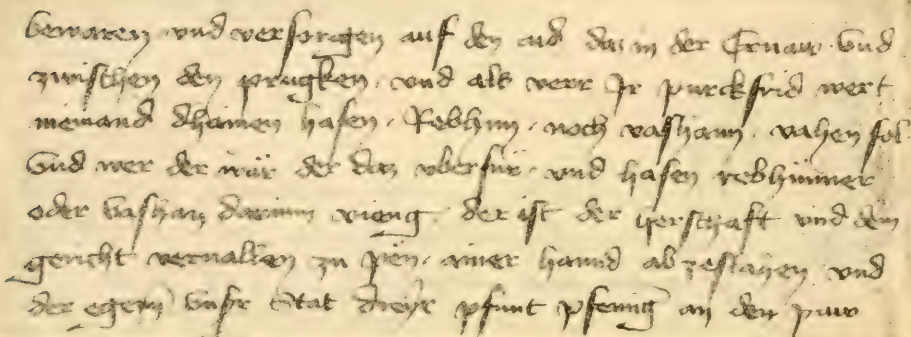 bewaren vnd versorigen auf den aid das in der Ernaw vnd
zwischen den prugken vnd als verr Ir purckfrid wert
niemand dhainen hasen Rebhun noch vashann vahen sol
vnd wer der wär der daz vberfür vnd hasen rebhünner
oder vashan darinn vieng der ist der herschaft vnd dem
gericht veruallen zu pen ainer hannd abzeslahen vnd
der egen vnsr Stat dreyr pfunt pfennig an den paw